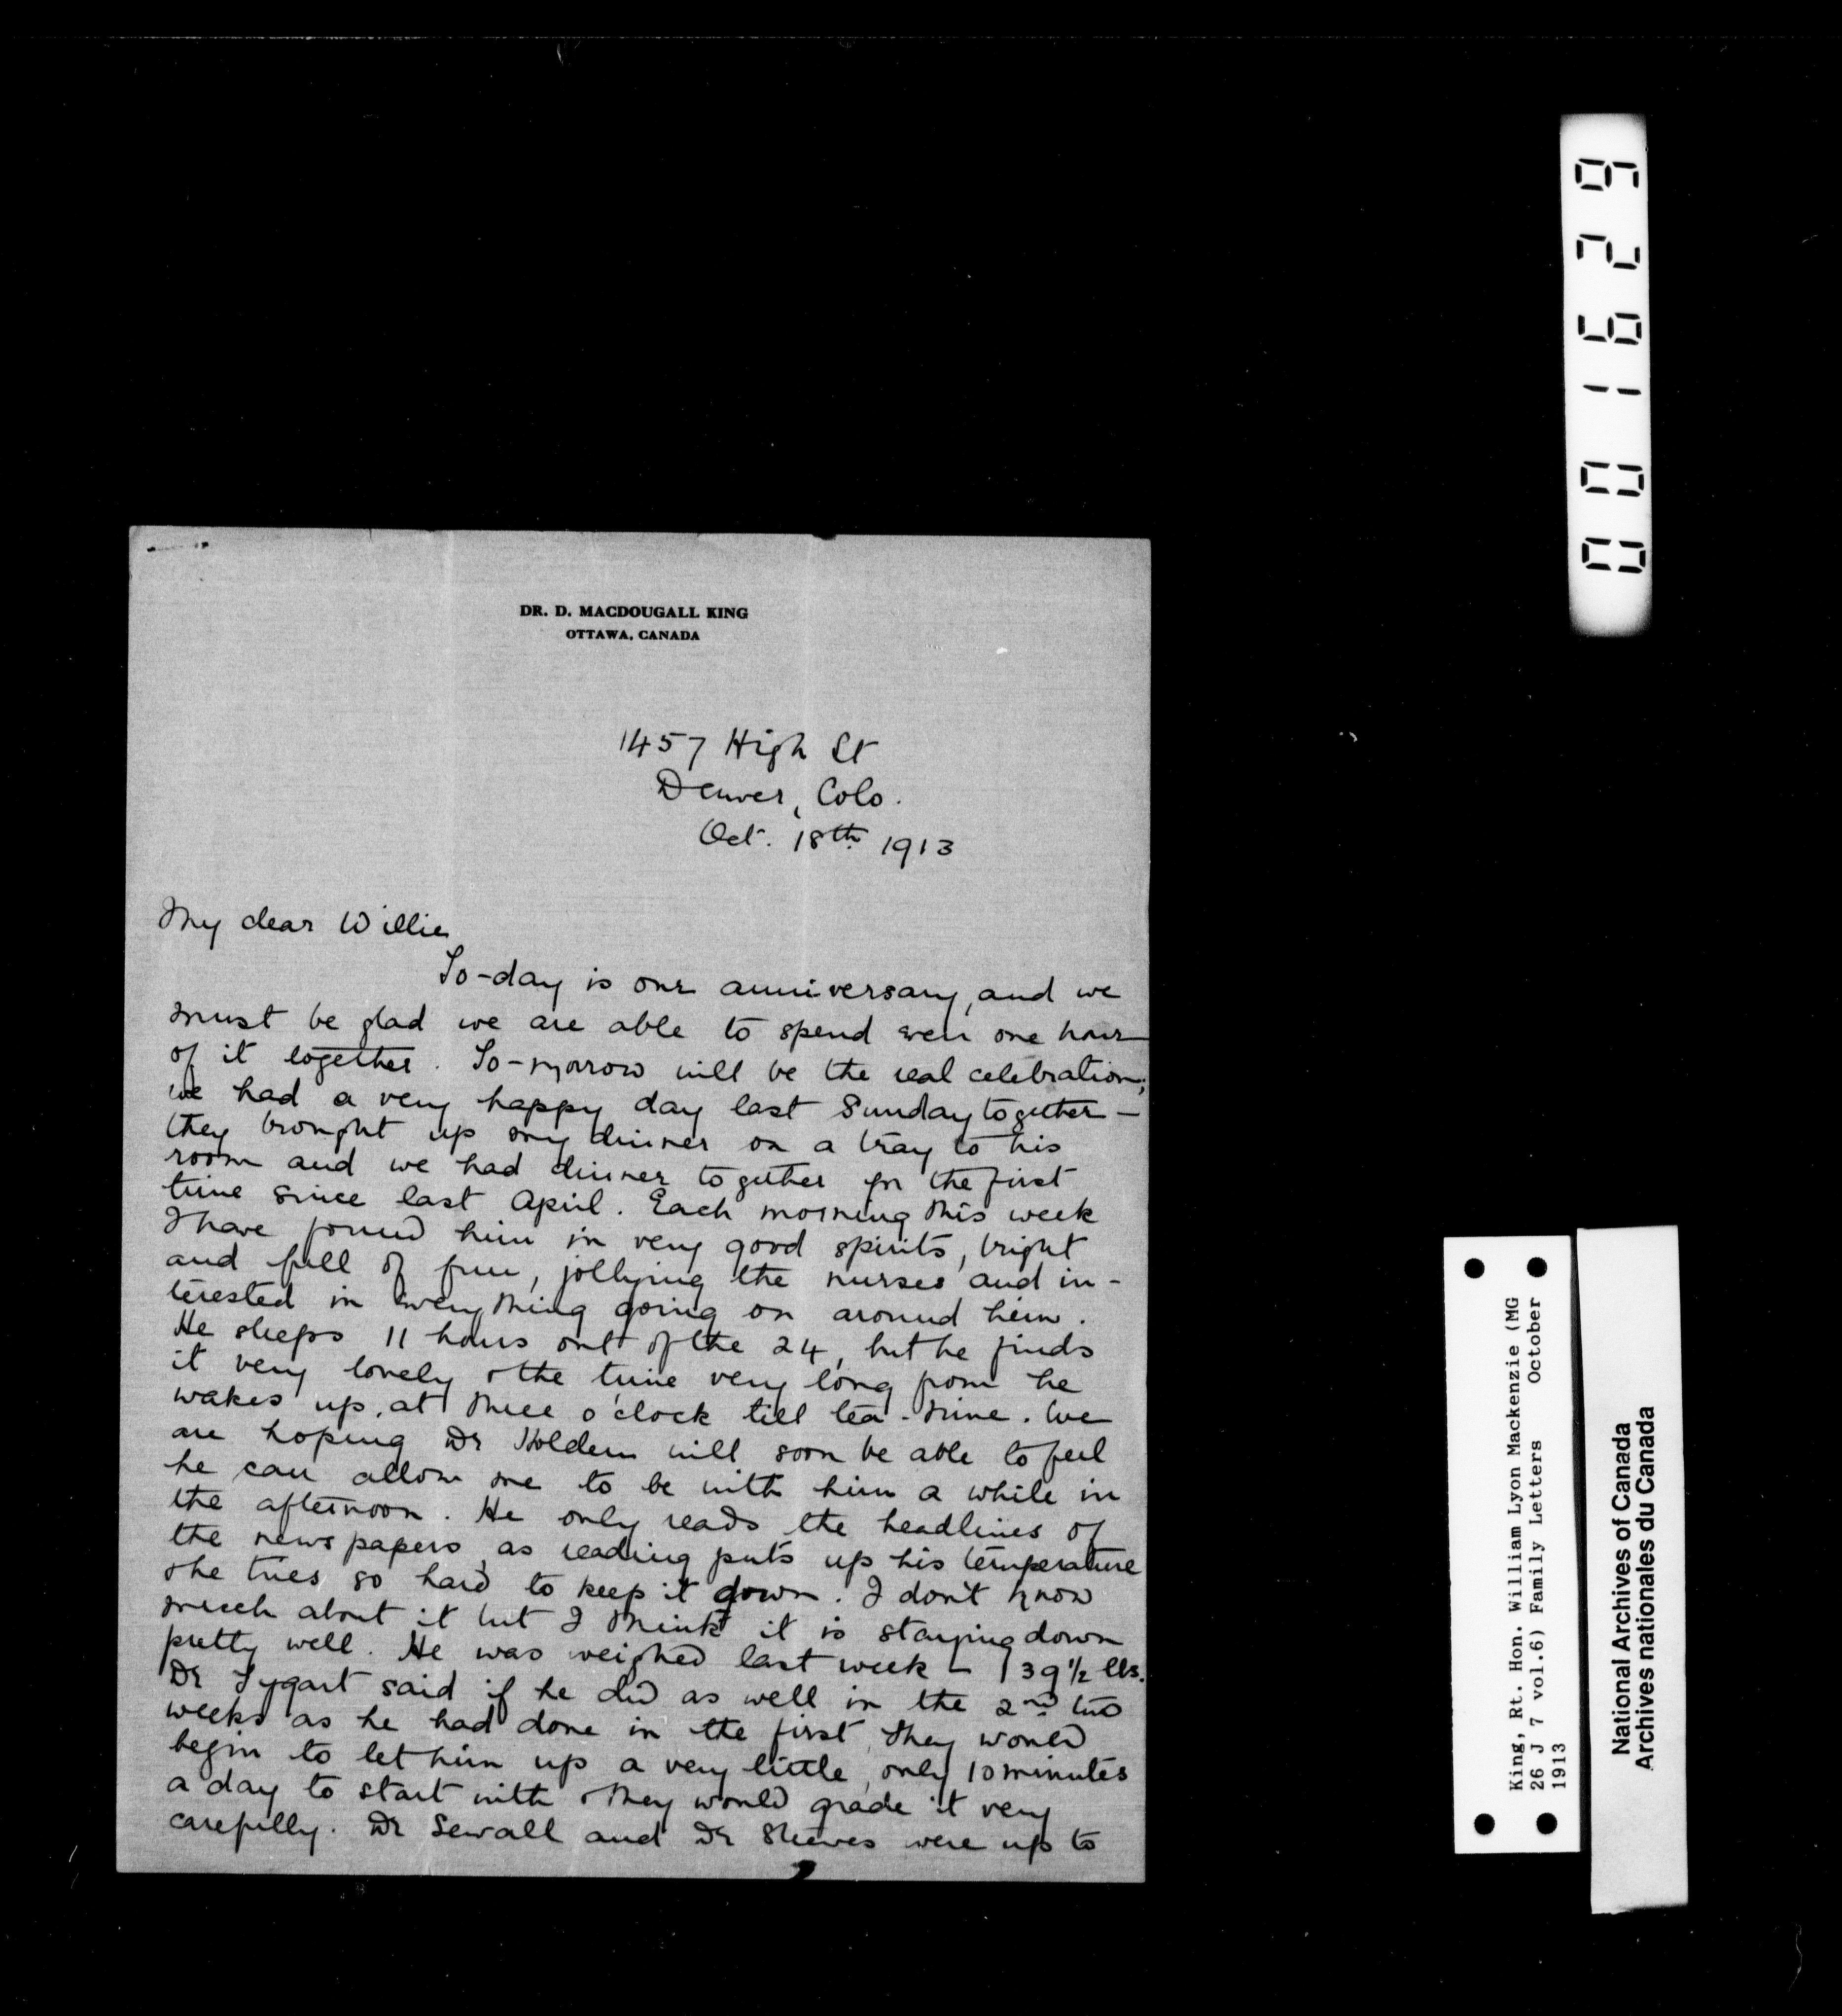 DR. D. MACDOUGALL KING
OTTAWA, CANADA
1457 High St
Denver, Colo.
Oct. 18th 1913
My dear Willie
To-day is our anniversary, and we
must be glad we are able to spend even one hour
of it together. To-morrow will be the real celebration;
we had a very happy day last Sunday together —
they brought up my dinner on a tray to his
room and we had dinner together for the first
time since last April. Each morning this week
I have found him in very good spirits, bright
and full of fun, jollying the nurses and in-
terested in everything going on around him.
He sleeps 11 hours out of the 24, but he finds
it very lonely & the time very long from he
wakes up, at three o'clock till tea-time. We
are hoping Dr Holden will soon be able to feel
he can allow me to be with him a while in
the afternoon. He only reads the headlines of
the newspapers, as reading puts up his temperature
& he tries so hard to keep it down. I don't know
much about it but I think it is staying down
pretty well. He was weighed last week — 139½ lbs.
Dr Tygart said if he did as well in the 2nd two
weeks as he had done in the first, they would
begin to let him up a very little, only 10 minutes
a day to start with & they would grade it very
carefully. Dr Sewall and Dr Sleeves were up to
001629
King, Rt. Hon. William Lyon Mackenzie (MG
26 J 7 vol.6) Family Letters October
1913
National Archives of Canada
Archives nationales du Canada